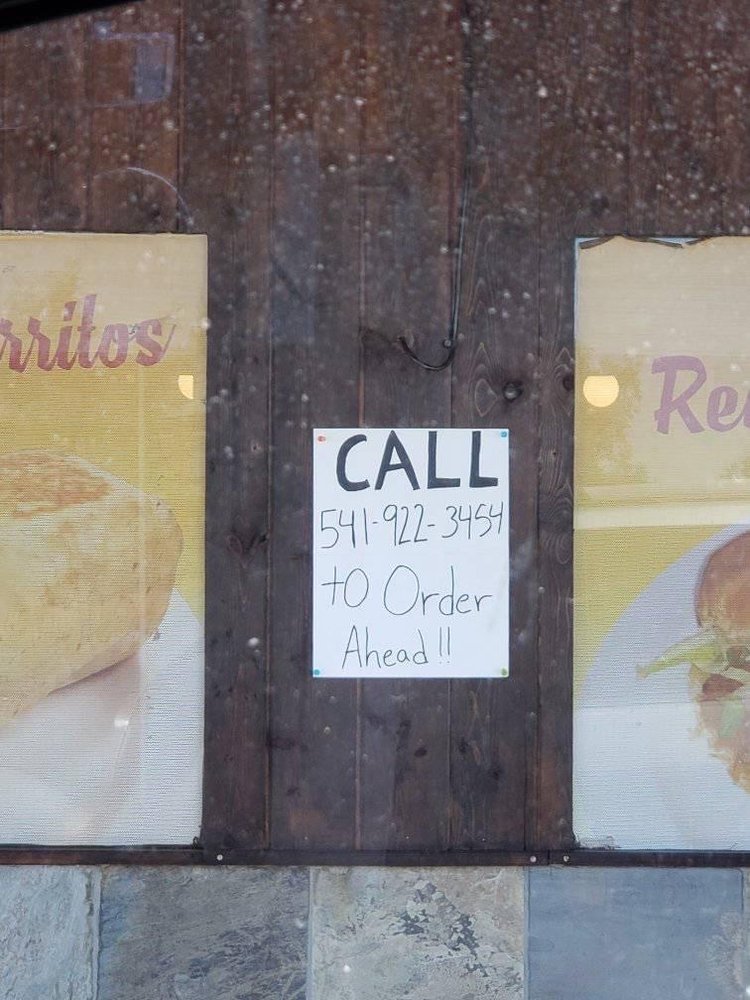 rritos
Re
CALL
541-922-3454
to Order
Ahead!!